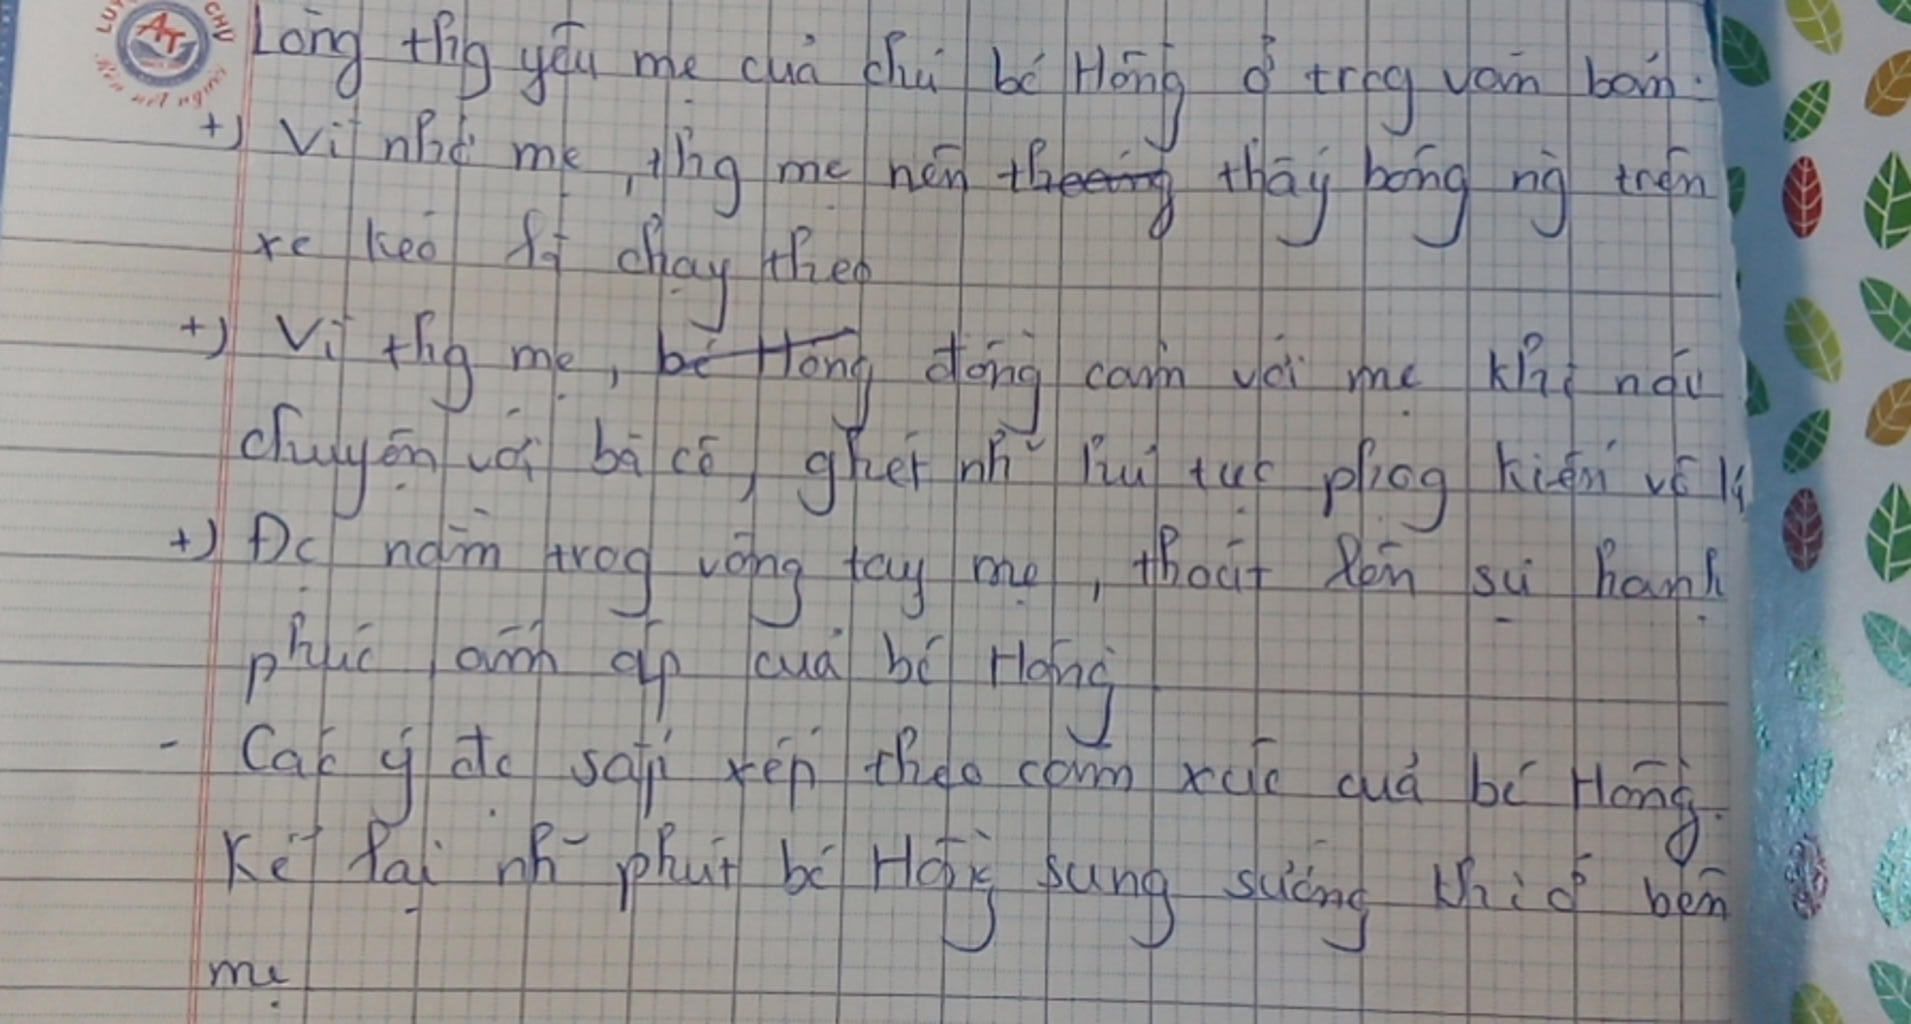 LUY CHU
AT
Rèn nét người
Lòng thg yêu mẹ của chú bé Hồng ở trog văn bản.
+) Vì nhớ mẹ, thg mẹ nên thấy bóng ng` trên
xe kéo chạy theo
+) Vì thg mẹ, bé Hồng đồng cảm với mẹ khi nói
chuyện với bà cô, ghét nh~ hủ tục phog kiến vô lí
+) Đc nằm trog vòng tay mẹ, thoát lên sự hạnh
phúc ấm áp của bé Hồng
- Các ý đc sắp xếp theo cảm xúc của bé Hồng.
Kể lại nh~ phút bé Hồng sung sướng khi ở bên
mẹ